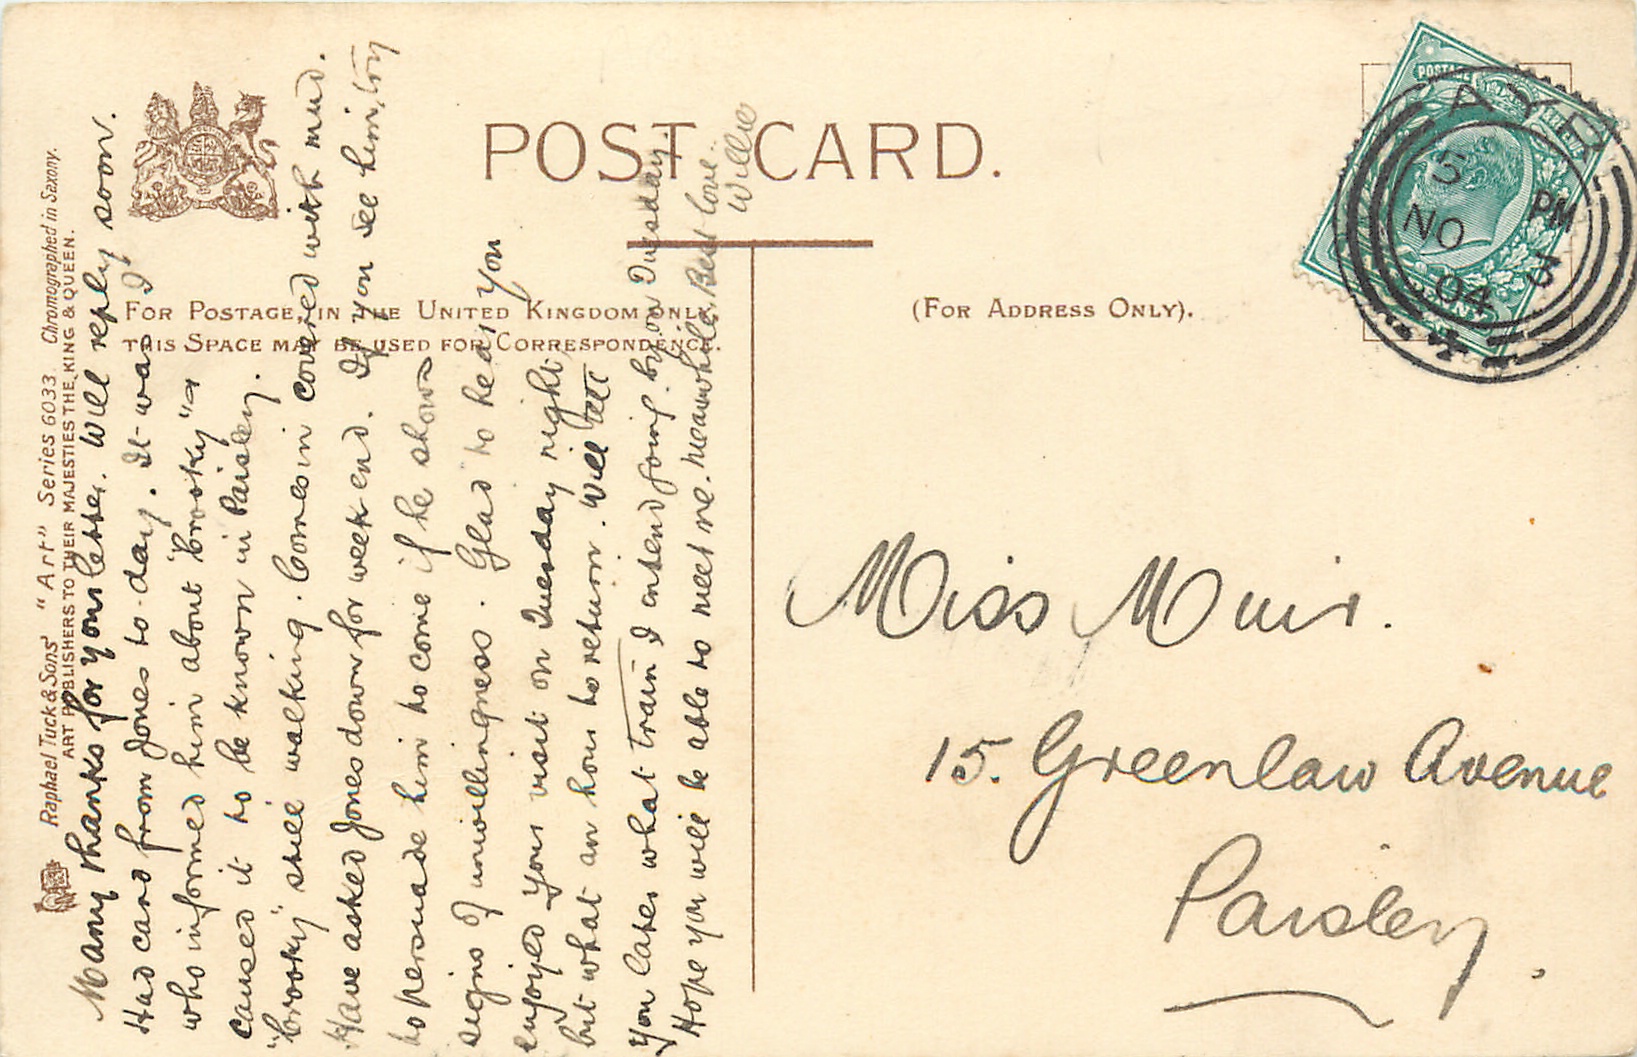 Raphael Tuck & Sons' "Art" Series 6033 Chromographed in Saxony.
ART PUBLISHERS TO THEIR MAJESTIES THE KING & QUEEN.
POST CARD.
FOR POSTAGE, IN THE UNITED KINGDOM ONLY,
THIS SPACE MAY BE USED FOR CORRESPONDENCE.
(FOR ADDRESS ONLY).
Many thanks for your letter. Will reply soon.
Had card from Jones to-day. It was I
who informed him about "brooky" &
caused it to be known in Paisley.
"brooky" still walking. Comes in covered with mud.
Have asked Jones down for week end. If you see him, try
to persuade him to come if he shows
signs of unwillingness. Glad to hear you
enjoyed your visit on Tuesday night,
but what an hour to return. Will tell
you later what train I intend going by on Tuesday.
Hope you will be able to meet me. meanwhile, Best love.
Willie
POSTAGE
AYR
S PM
NO 3
04
Miss Muir.
15. Greenlaw Avenue
Paisley.